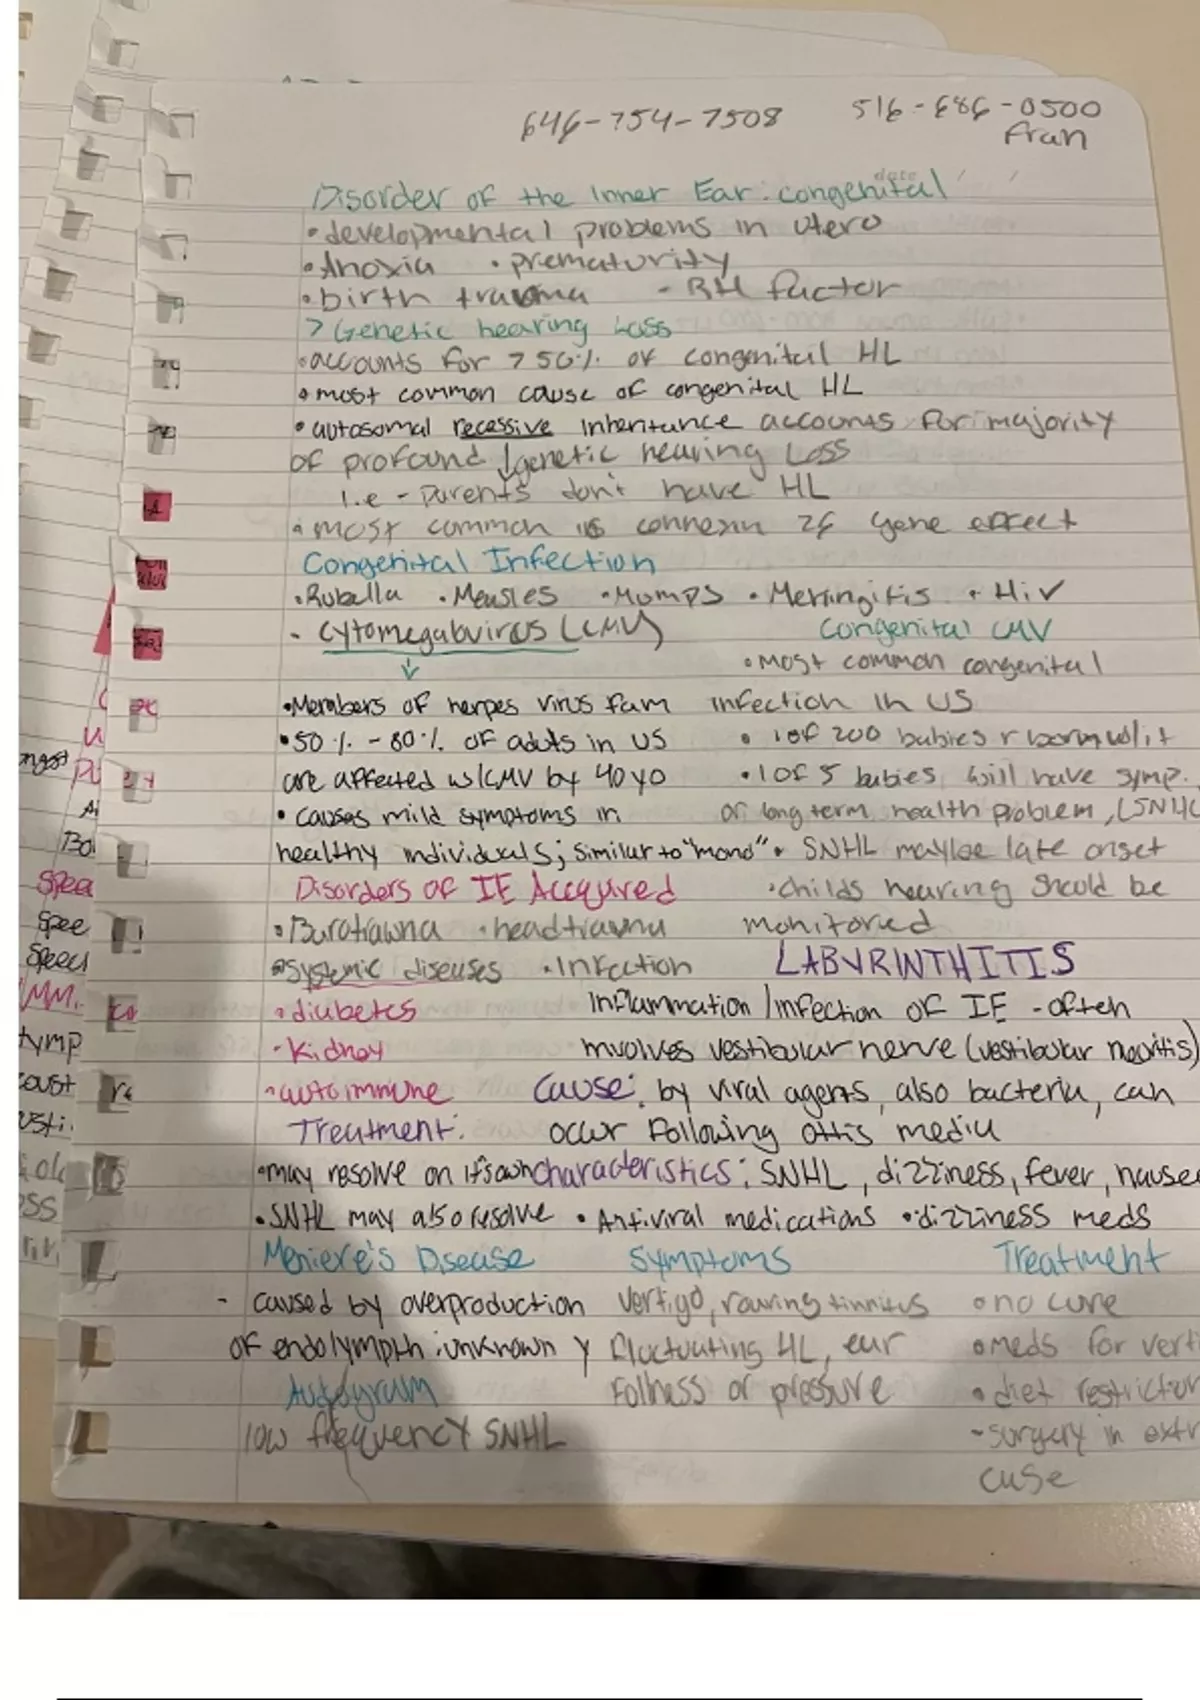 646-754-7508
516-686-0500
Fran
date / /
Disorder of the Inner Ear: congenital
• developmental problems in utero
• Anoxia • prematurity
• birth trauma - RH factor
> Genetic hearing Loss
• accounts for > 50% of congenital HL
• most common cause of congenital HL
• autosomal recessive inheritance accounts for majority
of profound ↓ genetic hearing Loss
i.e - parents don't have HL
• most common is connexin 26 gene effect
Congenital Infection
• Rubella • Measles • Mumps • Meningitis • Hiv
- Cytomegalovirus (CMV)
↓
• Members of herpes virus fam
• 50% - 80% of adults in US
are affected w/CMV by 40 yo
• causes mild symptoms in
healthy individuals; similar to "mono"
Congenital CMV
• Most common congenital
infection in US
• 1 of 200 babies r born w/it
• 1 of 5 babies will have symp.
or long term health problem, (SNHL
• SNHL maybe late onset
• childs hearing should be
monitored
Disorders of IE Accquired
• Barotrauma • head trauma
• Systemic diseases • Infection
• diabetes
- Kidney
- autoimmune
LABYRINTHITIS
Inflammation/infection of IE - often
involves vestibular nerve (vestibular neuritis)
Cause: by viral agents, also bacteria, can
occur following otitis media
characteristics: SNHL, dizziness, fever, nausea
Treatment:
• may resolve on its own
• SNHL may also resolve • Antiviral medications • dizziness meds
Meniere's Disease
- caused by overproduction
of endolymph; unknown y
Audogram
low frequency SNHL
Symptoms
vertigo, roaring tinnitus
fluctuating HL, ear
Fullness or pressure
Treatment
• no cure
• meds for verti
• diet restriction
- surgery in extr
case